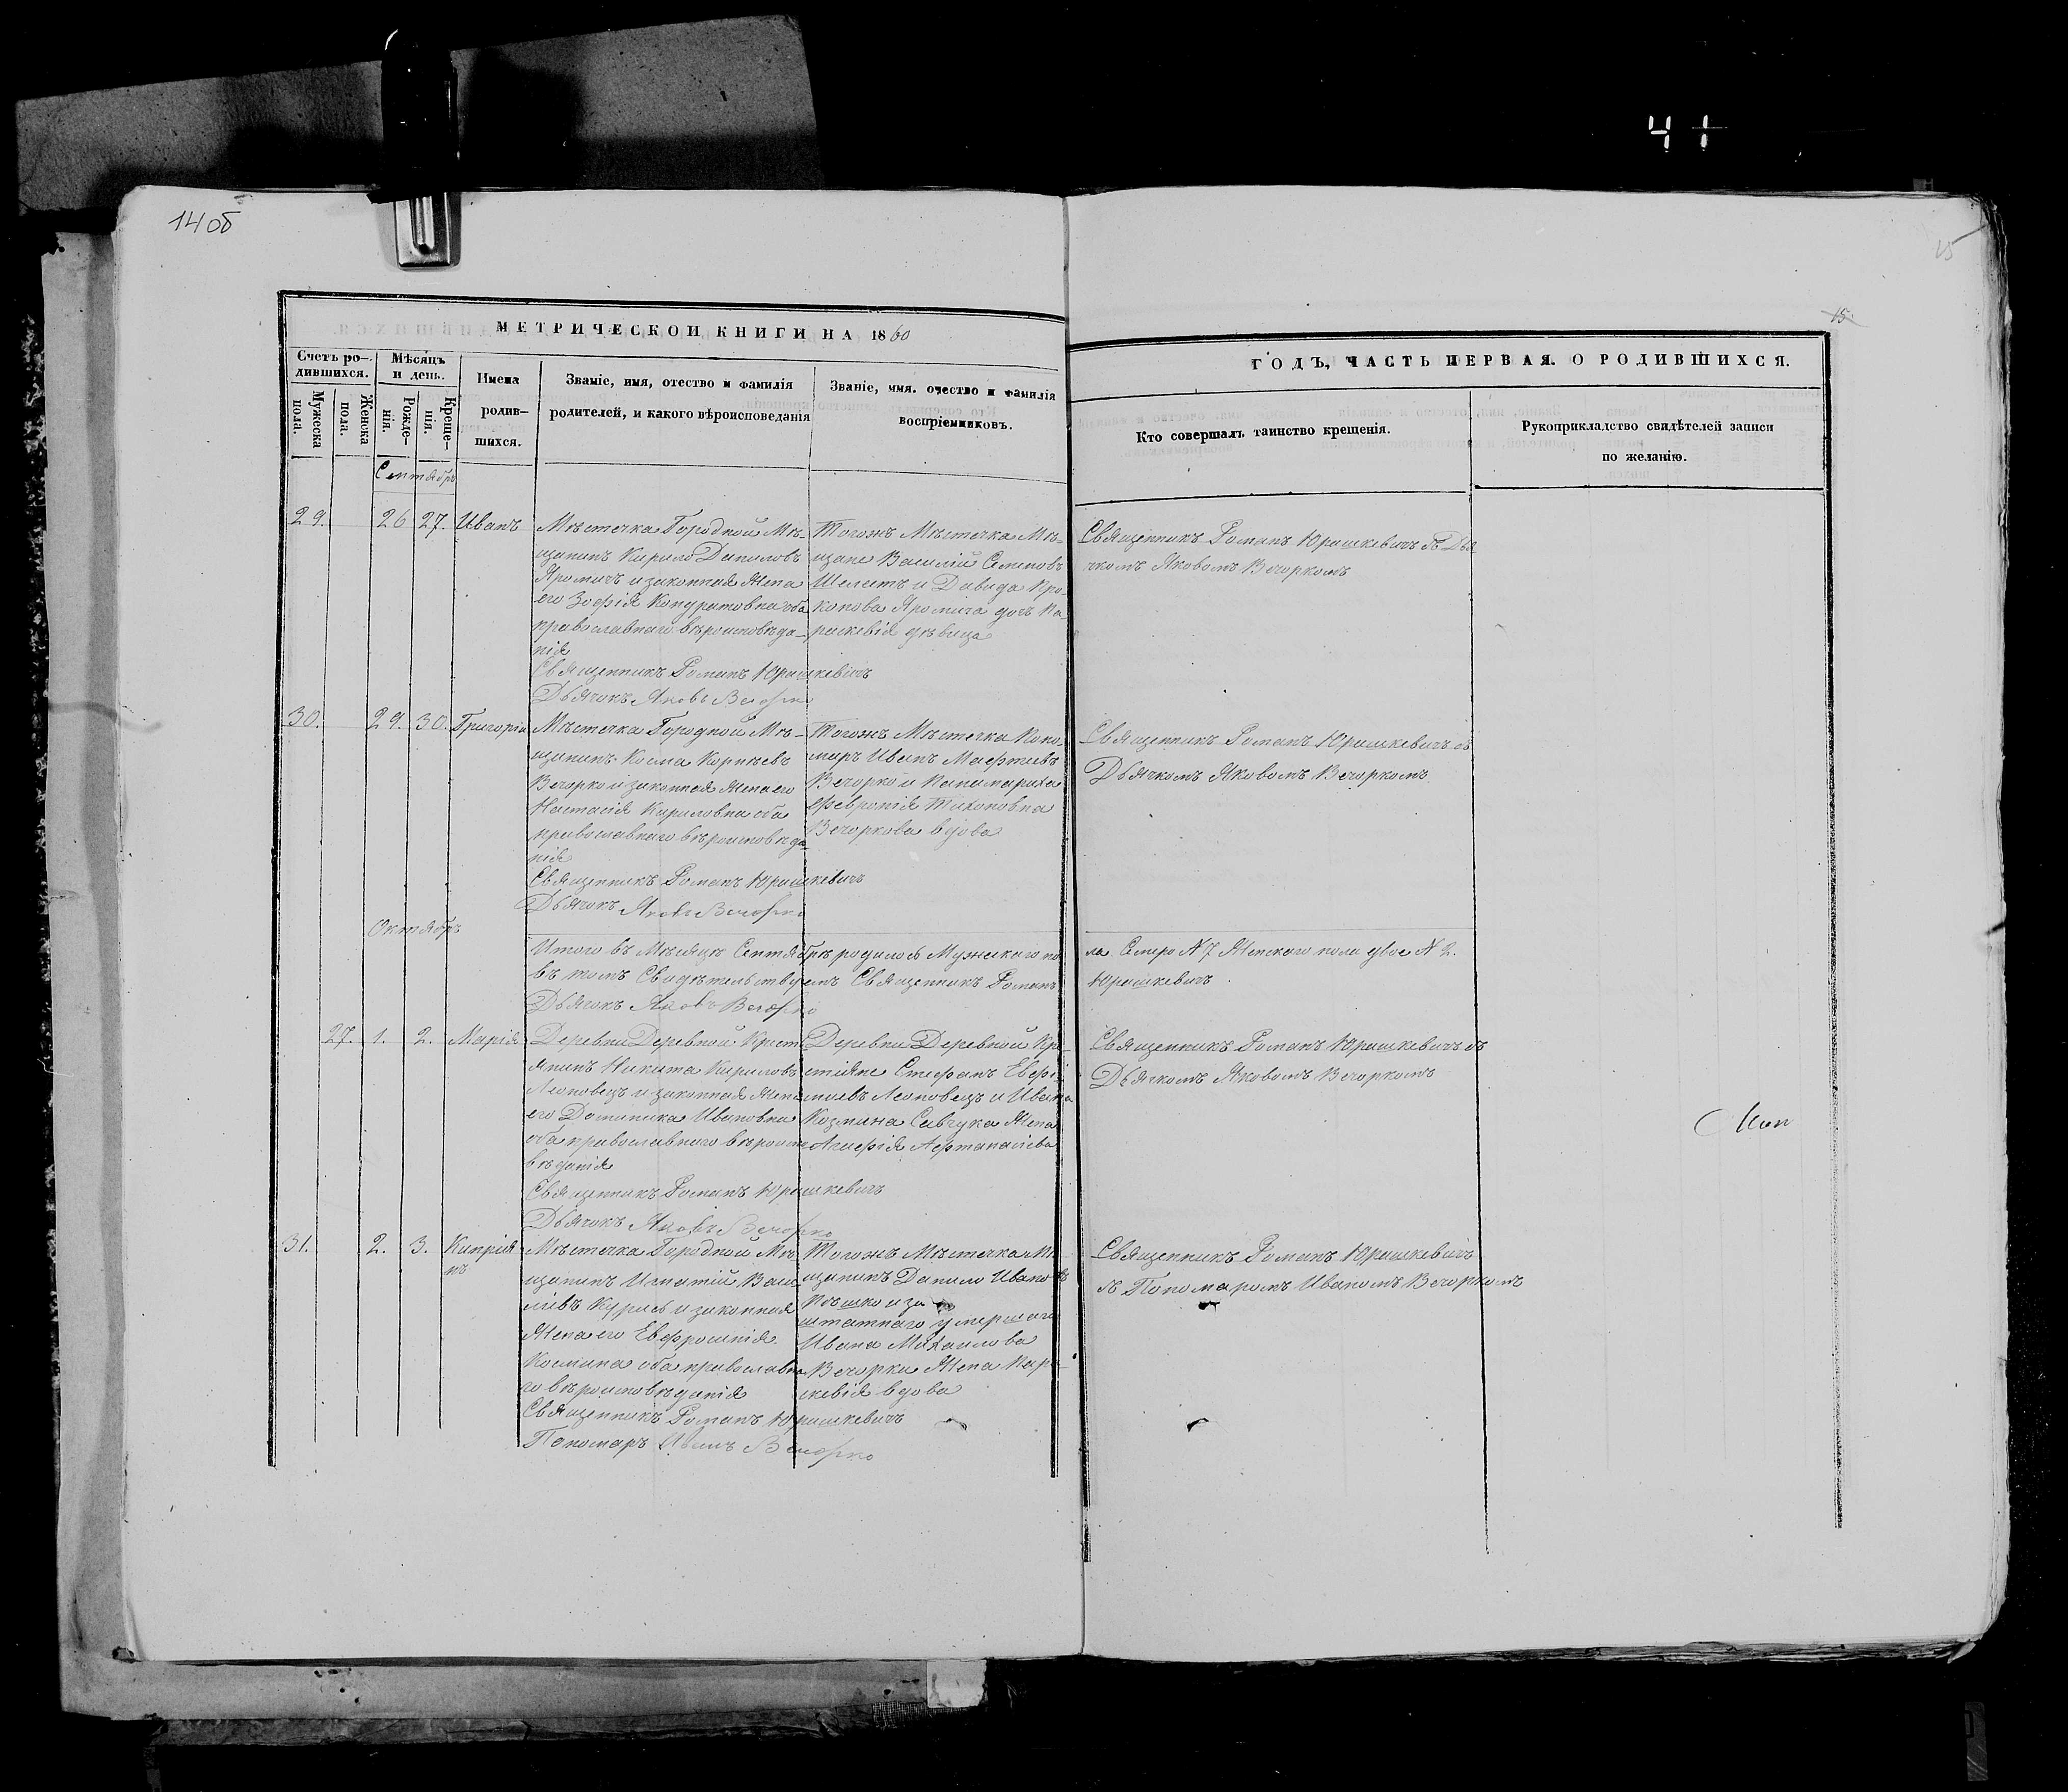 41
14 об
15
15
МЕТРИЧЕСКОЙ КНИГИ НА 1860
ГОДЪ, ЧАСТЬ ПЕРВАЯ. О РОДИВШИХСЯ.
Счетъ ро-
дившихся.
Мужеска
пола.
Женска
пола.
Мѣсяцъ
и день.
Рожде-
нія.
Креще-
нія.
Имена
родив-
шихся.
Званіе, имя, отество и фамилія
родителей, и какого вѣроисповеданія
Званіе, имя. очество и фамилія
воспріемниковъ.
Кто совершалъ таинство крещенія.
Рукоприкладство свидѣтелей записи
по желанію.
Сентябрь
29. 26 27. Иванъ
Мѣстечка Городной Мѣ-
щанинъ Кирило Даниловъ
Яромичъ и законная Жена
его Зофія Кондратовна оба
православнаго вѣроисповѣда-
нія
Священникъ Романъ Юрашкевичъ
Дьячокъ Яковъ Вечорко
Тогожъ Мѣстечка Мѣ-
щане Василій Семеновъ
Шелестъ и Давида Про-
копова Яромича дочь Па
раскевія дѣвица
Священникъ Романъ Юрашкевичъ съ Дья
чкомъ Яковомъ Вечоркомъ
30. 29. 30. Григорій
Мѣстечка Городной Мѣ-
щанинъ Косма Корнѣевъ
Вечорко и законная Жена его
Настасія Кириловна оба
православнаго вѣроисповѣда
нія
Священникъ Романъ Юрашкевичъ
Дьячокъ Яковъ Вечорко
Тогожъ Мѣстечка Поно-
маръ Иванъ
Вечорко и Панамариха
Февронія Тихоновна
Вечоркова вдова
Священникъ Романъ Юрашкевичъ съ
Дьячкомъ Яковомъ Вечоркомъ
Октябрь
Итого въ Мѣсяцѣ Сентябрѣ родилось Мужскаго по
ла Семеро № 7 Женскаго пола двое № 2.
въ томъ Свидѣтельствуемъ Священникъ Романъ
Юрашкевичъ.
Дьячокъ Яковъ Вечорко
27. 1. 2. Марія
Деревни Деревной Крест
янинъ Никита Кириловъ
Леоновецъ и законная Жена
его Доминика Ивановна
оба православнаго вѣроиспо
вѣданія
Священникъ Романъ Юрашкевичъ
Дьячокъ Яковъ Вечорко
Деревни Деревной Кре-
стіяне Стефанъ Евфи-
міевъ Леоновецъ и Ивана
Козмина Савчука Жена
Агафія
Священникъ Романъ Юрашкевичъ съ
Дьячкомъ Яковомъ Вечоркомъ
31. 2. 3. Кипрія
нъ
Мѣстечка Городной Мѣ
щанинъ Игнатій Васи
ліевъ Курисъ и законная
Жена его Евфросинія
Космина оба православна
го вѣроисповѣданія
Священникъ Романъ Юрашкевичъ
Пономаръ Иванъ Вечорко
Тогожъ Мѣстечка Мѣ
щанинъ Данило Ивановъ
и за
штатнаго умершаго
Ивана Михаилова
Вечорки Жена Пара-
скевія вдова
Священникъ Романъ Юрашкевичъ
съ Пономаромъ Иваномъ Вечоркомъ